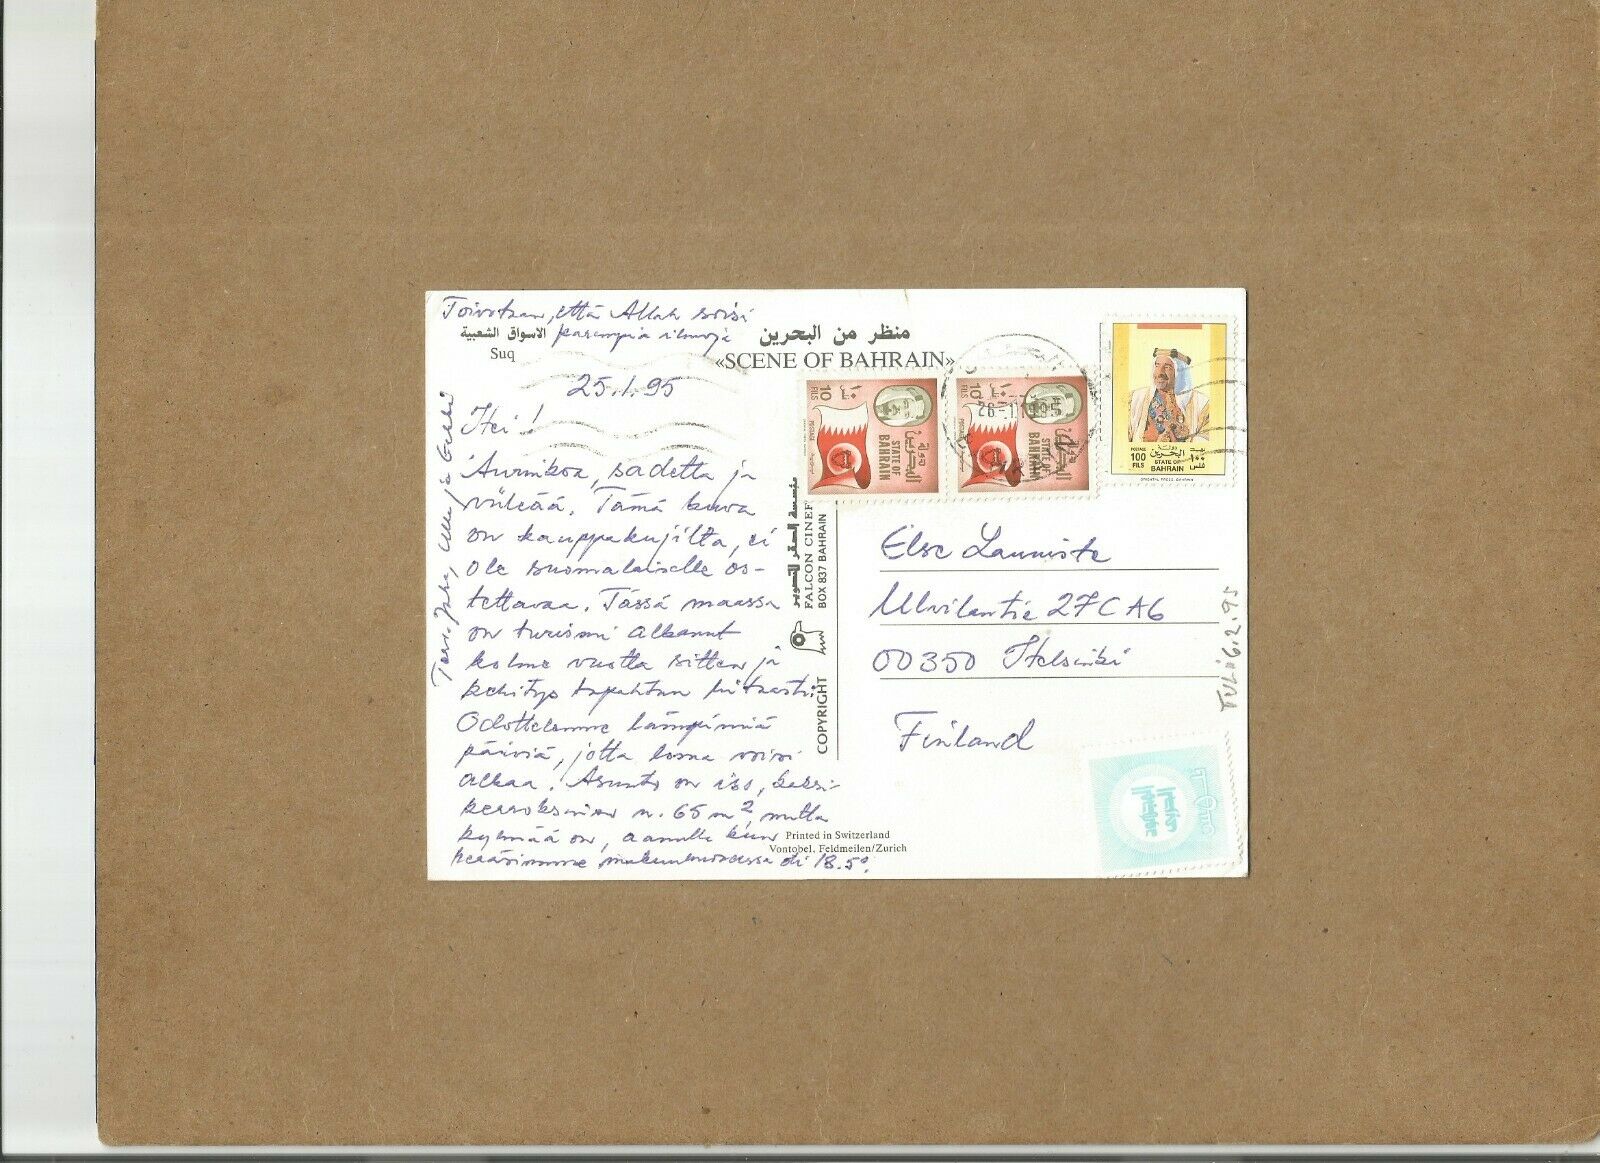 Toivotaan, että Allah soisi
parempia ilmoja
الاسواق الشعبية
Suq
منظر من البحرين
«SCENE OF BAHRAIN»
25.1.95
Hei!
Aurinkoa, sadetta ja
viileää. Tämä kuva
on kauppakujilta, ei
ole suomalaiselle os-
tettavaa. Tässä maassa
on turismi alkanut
kolme vuotta sitten ja
kehitys tapahtuu hitaasti.
Odottelemme lämpimiä
päiviä, jotta loma voisi
alkaa. Asunto on iso, kaksi-
kerroksinen n. 65 m², mutta
kylmää on, aamulla kun
heräsimme makuuhuoneessa oli 18.5°.
Terv. Ulla ja Erkki
مؤسسة الصقر للتصوير
FALCON CINEF
BOX 837 BAHRAIN
COPYRIGHT
Printed in Switzerland
Vontobel, Feldmeilen/Zurich
10
FILS
POSTAGE
دولة البحرين
STATE OF
BAHRAIN
10
FILS
دولة البحرين
STATE OF
BAHRAIN
28-1 1995
POSTAGE
100
FILS
دولة
البحرين
STATE OF
BAHRAIN
بريد
١٠٠
فلس
ORIENTAL PRESS, BAHRAIN
Else Launiste
Ulvilantie 27 C A6
00350 Helsinki
Finland
TULI 6.2.95